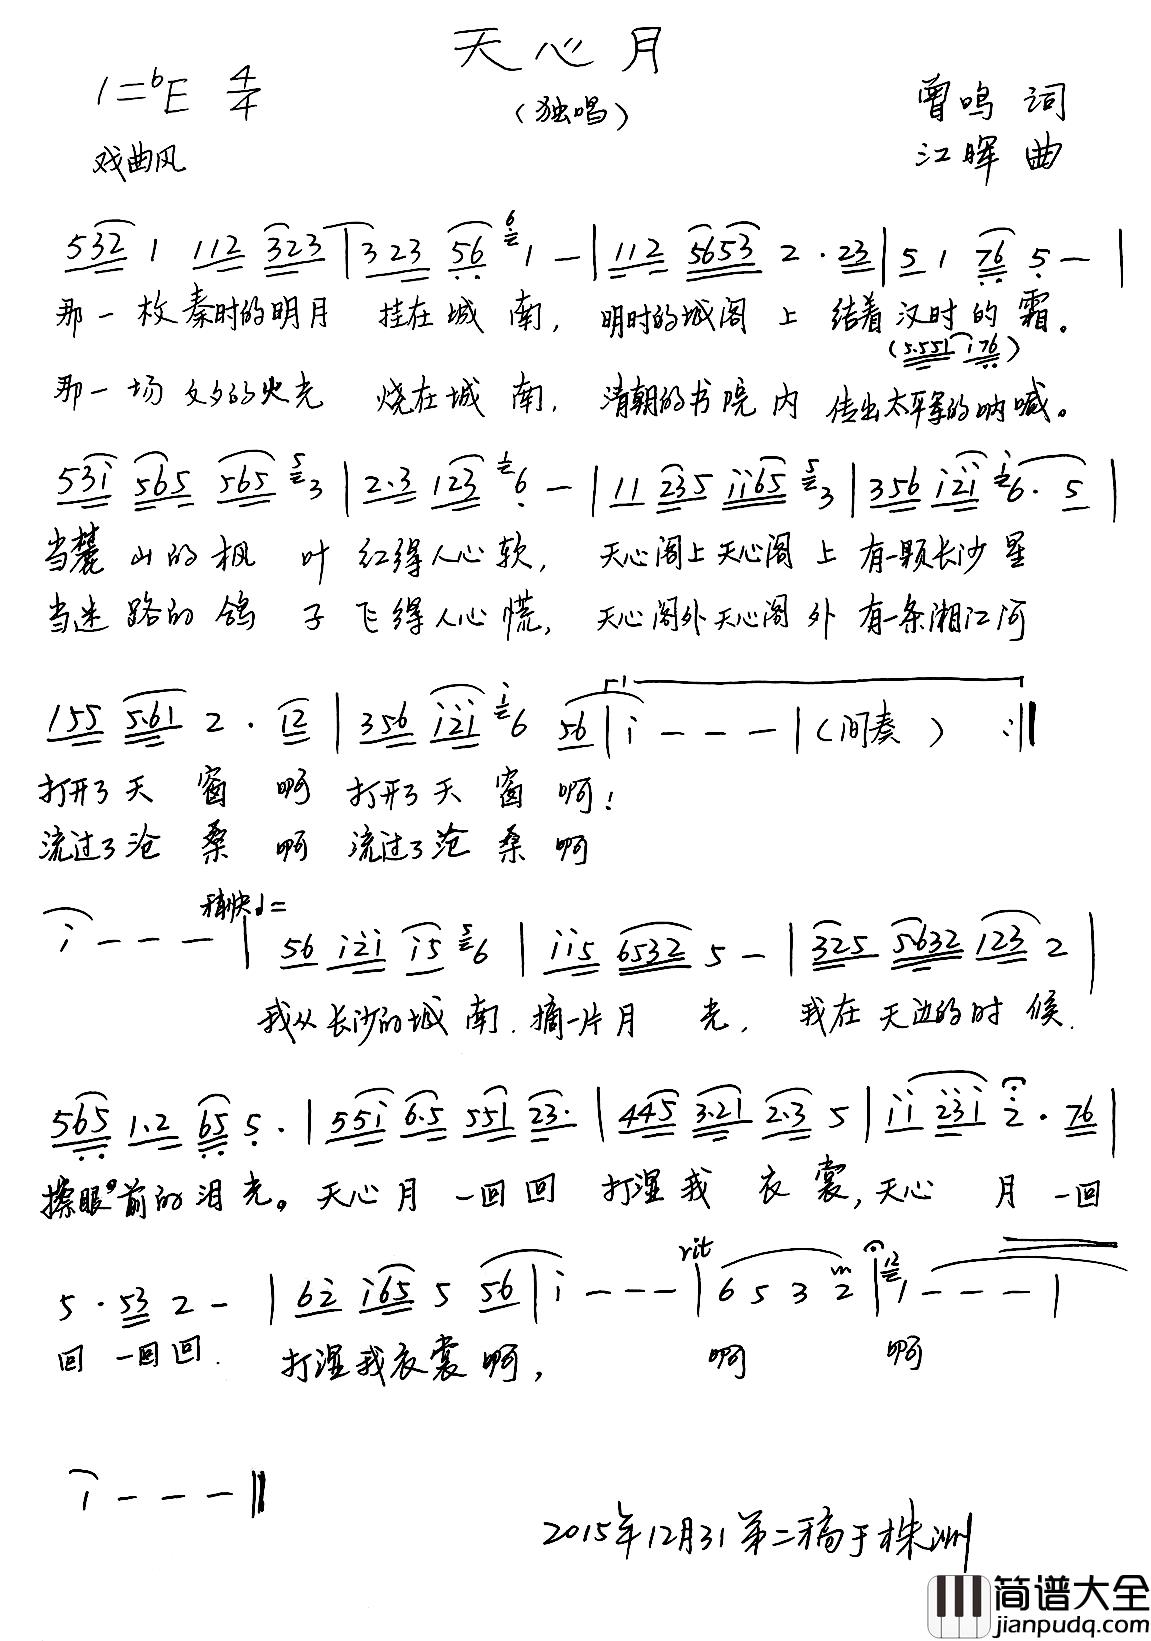 天心月
1=bE 4/4
（独唱）
曾鸣 词
戏曲风
江晖 曲
532 1 112 323 | 323 56 6 2 1 - | 112 5653 2 · 23 | 5 1 76 5 - |
那一枚秦时的明月 挂在城南， 明时的城阁上 结着汉时的霜。
(5.551 i76)
那一场文夕的火光 烧在城南， 清朝的书院内 传出太平军的呐喊。
53i 565 565 5 3 | 2·3 123 6 - | 11 235 ii65 5 3 | 356 i2i i 6· 5 |
当麓山的枫叶 红得人心软， 天心阁上天心阁上 有一颗长沙星
当迷路的鸽子 飞得人心慌， 天心阁外天心阁外 有一条湘江河
155 5·61 2 · 12 | 356 i2i i 6 56 | i - - - | （间奏） :||
打开了天窗啊 打开了天窗啊！
流过了沧桑啊 流过了沧桑啊
稍快♩=
i - - - | 56 i2i i5 5 6 | ii5 6532 5 - | 325 5632 123 2 |
我从长沙的城南.摘一片月光， 我在天边的时候.
565 1·2 65 5 · | 55i 6·5 551 23· | 445 3·21 2·3 5 | ii 23i 2 · 76 |
擦眼前的泪光。天心月一回回 打湿我衣裳，天心月一回
rit
5 · 53 2 - | 62 i65 5 56 | i - - - | 6 5 3 2 | 12 1 - - - |
回一回回. 打湿我衣裳啊， 啊 啊
1 - - - ||
2015年12月31第二稿于株洲
简谱大全
jianpudq.com